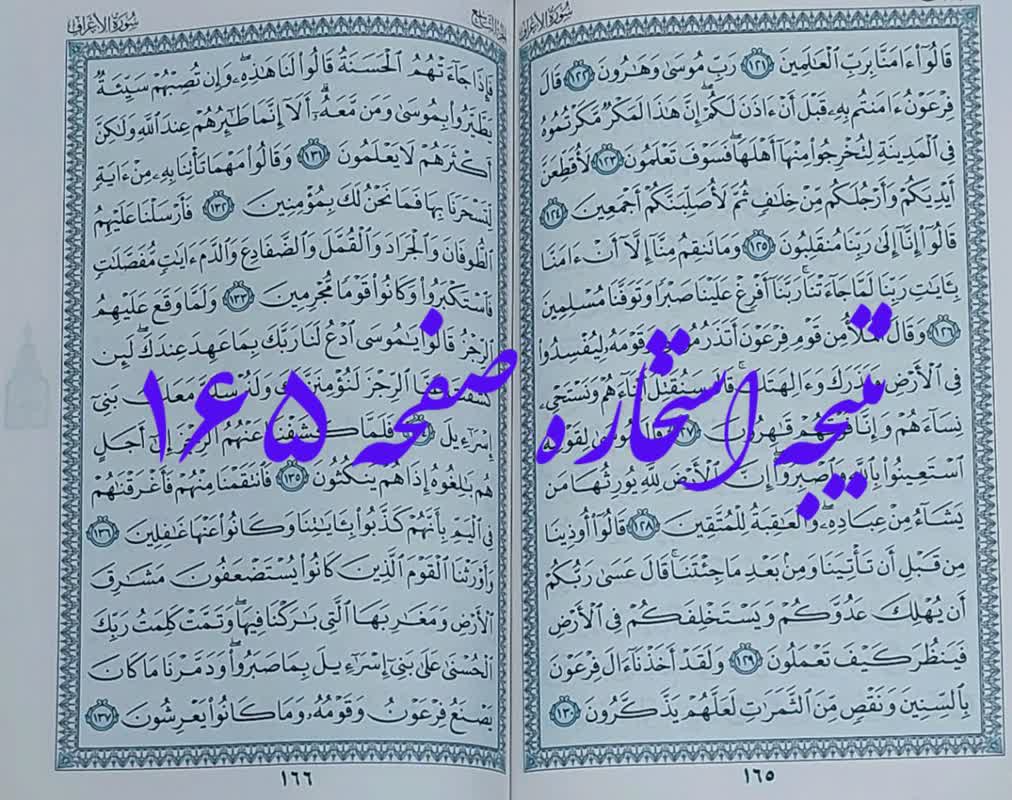 سُورَةُ الأَعْرَافِ
قَالُوٓا۟ ءَامَنَّا بِرَبِّ ٱلْعَـٰلَمِينَ ١٢١ رَبِّ مُوسَىٰ وَهَـٰرُونَ ١٢٢ قَالَ
فِرْعَوْنُ ءَامَنتُم بِهِۦ قَبْلَ أَنْ ءَاذَنَ لَكُمْ ۖ إِنَّ هَـٰذَا لَمَكْرٌ مَّكَرْتُمُوهُ
فِى ٱلْمَدِينَةِ لِتُخْرِجُوا۟ مِنْهَآ أَهْلَهَا ۖ فَسَوْفَ تَعْلَمُونَ ١٢٣ لَأُقَطِّعَنَّ
أَيْدِيَكُمْ وَأَرْجُلَكُم مِّنْ خِلَـٰفٍ ثُمَّ لَأُصَلِّبَنَّكُمْ أَجْمَعِينَ ١٢٤
قَالُوٓا۟ إِنَّآ إِلَىٰ رَبِّنَا مُنقَلِبُونَ ١٢٥ وَمَا تَنقِمُ مِنَّآ إِلَّآ أَنْ ءَامَنَّا
بِـَٔايَـٰتِ رَبِّنَا لَمَّا جَآءَتْنَا ۚ رَبَّنَآ أَفْرِغْ عَلَيْنَا صَبْرًا وَتَوَفَّنَا مُسْلِمِينَ
١٢٦ وَقَالَ ٱلْمَلَأُ مِن قَوْمِ فِرْعَوْنَ أَتَذَرُ مُوسَىٰ وَقَوْمَهُۥ لِيُفْسِدُوا۟
فِى ٱلْأَرْضِ وَيَذَرَكَ وَءَالِهَتَكَ ۚ قَالَ سَنُقَتِّلُ أَبْنَآءَهُمْ وَنَسْتَحْىِۦ
نِسَآءَهُمْ وَإِنَّا فَوْقَهُمْ قَـٰهِرُونَ ١٢٧ قَالَ مُوسَىٰ لِقَوْمِهِ
ٱسْتَعِينُوا۟ بِٱللَّهِ وَٱصْبِرُوٓا۟ ۖ إِنَّ ٱلْأَرْضَ لِلَّهِ يُورِثُهَا مَن
يَشَآءُ مِنْ عِبَادِهِۦ ۖ وَٱلْعَـٰقِبَةُ لِلْمُتَّقِينَ ١٢٨ قَالُوٓا۟ أُوذِينَا
مِن قَبْلِ أَن تَأْتِيَنَا وَمِنۢ بَعْدِ مَا جِئْتَنَا ۚ قَالَ عَسَىٰ رَبُّكُمْ
أَن يُهْلِكَ عَدُوَّكُمْ وَيَسْتَخْلِفَكُمْ فِى ٱلْأَرْضِ
فَيَنظُرَ كَيْفَ تَعْمَلُونَ ١٢٩ وَلَقَدْ أَخَذْنَآ ءَالَ فِرْعَوْنَ
بِٱلسِّنِينَ وَنَقْصٍ مِّنَ ٱلثَّمَرَٰتِ لَعَلَّهُمْ يَذَّكَّرُونَ ١٣٠
١٦٥
سُورَةُ الأَعْرَافِ
فَإِذَا جَآءَتْهُمُ ٱلْحَسَنَةُ قَالُوا۟ لَنَا هَـٰذِهِۦ ۖ وَإِن تُصِبْهُمْ سَيِّئَةٌ
يَطَّيَّرُوا۟ بِمُوسَىٰ وَمَن مَّعَهُۥٓ ۗ أَلَآ إِنَّمَا طَـٰٓئِرُهُمْ عِندَ ٱللَّهِ وَلَـٰكِنَّ
أَكْثَرَهُمْ لَا يَعْلَمُونَ ١٣١ وَقَالُوا۟ مَهْمَا تَأْتِنَا بِهِۦ مِنْ ءَايَةٍ
لِّتَسْحَرَنَا بِهَا فَمَا نَحْنُ لَكَ بِمُؤْمِنِينَ ١٣٢ فَأَرْسَلْنَا عَلَيْهِمُ
ٱلطُّوفَانَ وَٱلْجَرَادَ وَٱلْقُمَّلَ وَٱلضَّفَادِعَ وَٱلدَّمَ ءَايَـٰتٍ مُّفَصَّلَـٰتٍ
فَٱسْتَكْبَرُوا۟ وَكَانُوا۟ قَوْمًا مُّجْرِمِينَ ١٣٣ وَلَمَّا وَقَعَ عَلَيْهِمُ
ٱلرِّجْزُ قَالُوا۟ يَـٰمُوسَى ٱدْعُ لَنَا رَبَّكَ بِمَا عَهِدَ عِندَكَ ۖ لَئِن
كَشَفْتَ عَنَّا ٱلرِّجْزَ لَنُؤْمِنَنَّ لَكَ وَلَنُرْسِلَنَّ مَعَكَ بَنِىٓ
إِسْرَٰٓءِيلَ ١٣٤ فَلَمَّا كَشَفْنَا عَنْهُمُ ٱلرِّجْزَ إِلَىٰٓ أَجَلٍ
هُم بَـٰلِغُوهُ إِذَا هُمْ يَنكُثُونَ ١٣٥ فَٱنتَقَمْنَا مِنْهُمْ فَأَغْرَقْنَـٰهُمْ
فِى ٱلْيَمِّ بِأَنَّهُمْ كَذَّبُوا۟ بِـَٔايَـٰتِنَا وَكَانُوا۟ عَنْهَا غَـٰفِلِينَ ١٣٦
وَأَوْرَثْنَا ٱلْقَوْمَ ٱلَّذِينَ كَانُوا۟ يُسْتَضْعَفُونَ مَشَـٰرِقَ
ٱلْأَرْضِ وَمَغَـٰرِبَهَا ٱلَّتِى بَـٰرَكْنَا فِيهَا ۖ وَتَمَّتْ كَلِمَتُ رَبِّكَ
ٱلْحُسْنَىٰ عَلَىٰ بَنِىٓ إِسْرَٰٓءِيلَ بِمَا صَبَرُوا۟ ۖ وَدَمَّرْنَا مَا كَانَ
يَصْنَعُ فِرْعَوْنُ وَقَوْمُهُۥ وَمَا كَانُوا۟ يَعْرِشُونَ ١٣٧
١٦٦
نتیجه استخاره صفحه ۱۶۵